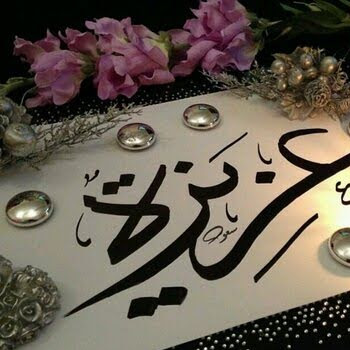 عزيزة